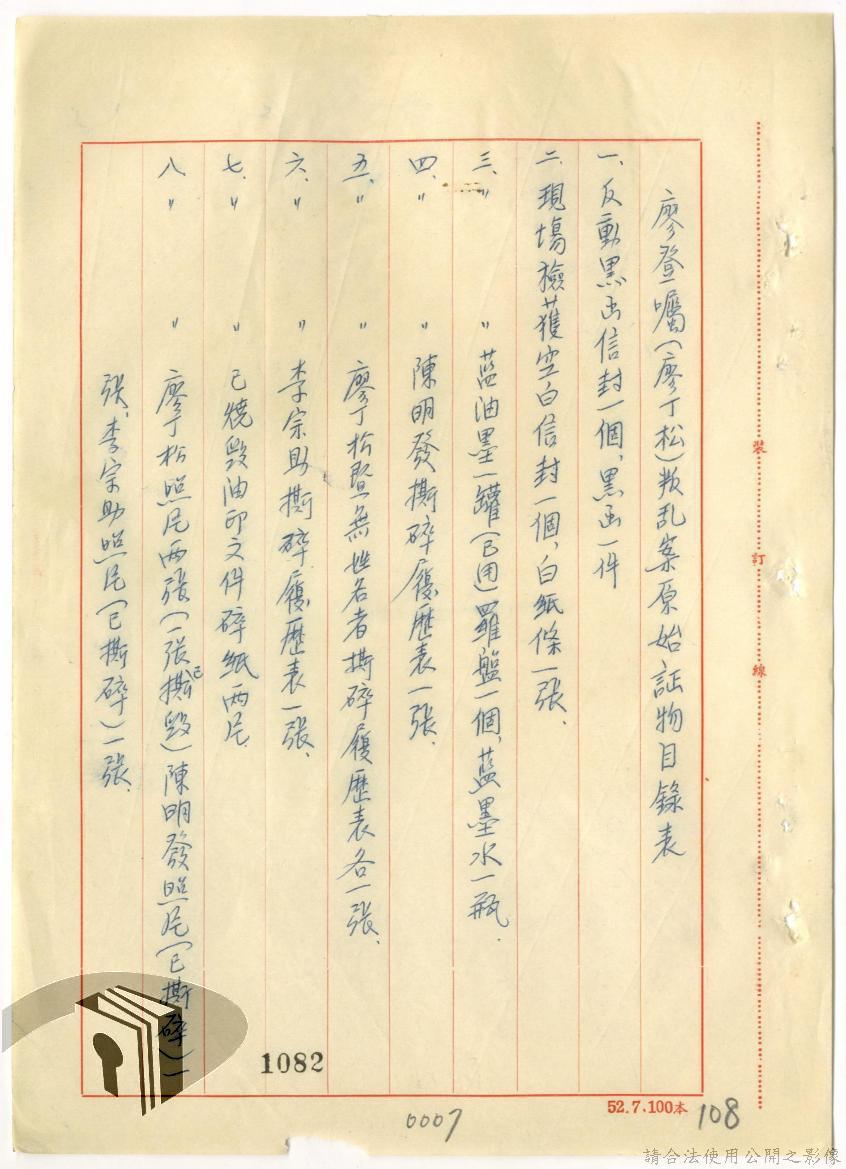 廖登囑(廖丁松)叛乱案原始証物目錄表
一、反動黑函信封一個、黑函一件
二、現場檢獲空白信封一個、白紙條一張、
三、〃 〃 藍油墨一罐(已用)羅盤一個、藍墨水一瓶、
四、〃 〃 陳明發撕碎履歷表一張、
五、〃 〃 廖丁松暨無姓名者撕碎履歷表各一張、
六、〃 〃 李宗助撕碎履歷表一張、
七、〃 〃 已燒毀油印文件碎紙兩片
八、〃 〃 廖丁松照片兩張(一張已撕毀)陳明發照片(已撕碎)一
張、李宗助照片(已撕碎)一張、
裝
訂
線
1082
0007
52.7.100本
108
請合法使用公開之影像